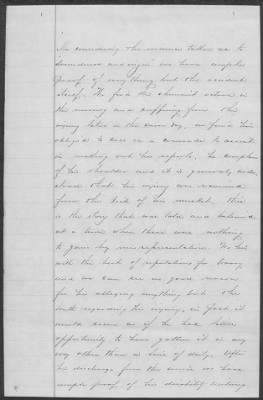 In considering the evidence taken as to
soundness and origin we have ample
proof of everything but the accident
itself. We find the claimant active in
the morning and suffering from the
injury later in the same day, we find him
obliged to use as a
in making out his reports, he complains
of his shoulder and it is generally under-
stood that his injury was received
from the kick of his musket, this
is the story that was told and believed
at a time when there was nothing
to gain by misrepresentation. He has
with the best of reputations for bravery
and we can see no good reason
for his alleging anything but the
truth regarding the injury, in fact it
would seem as if he had little
opportunity to have gotten it in any
way other than in line of duty. After
his discharge from the service we have
ample proof of his disability